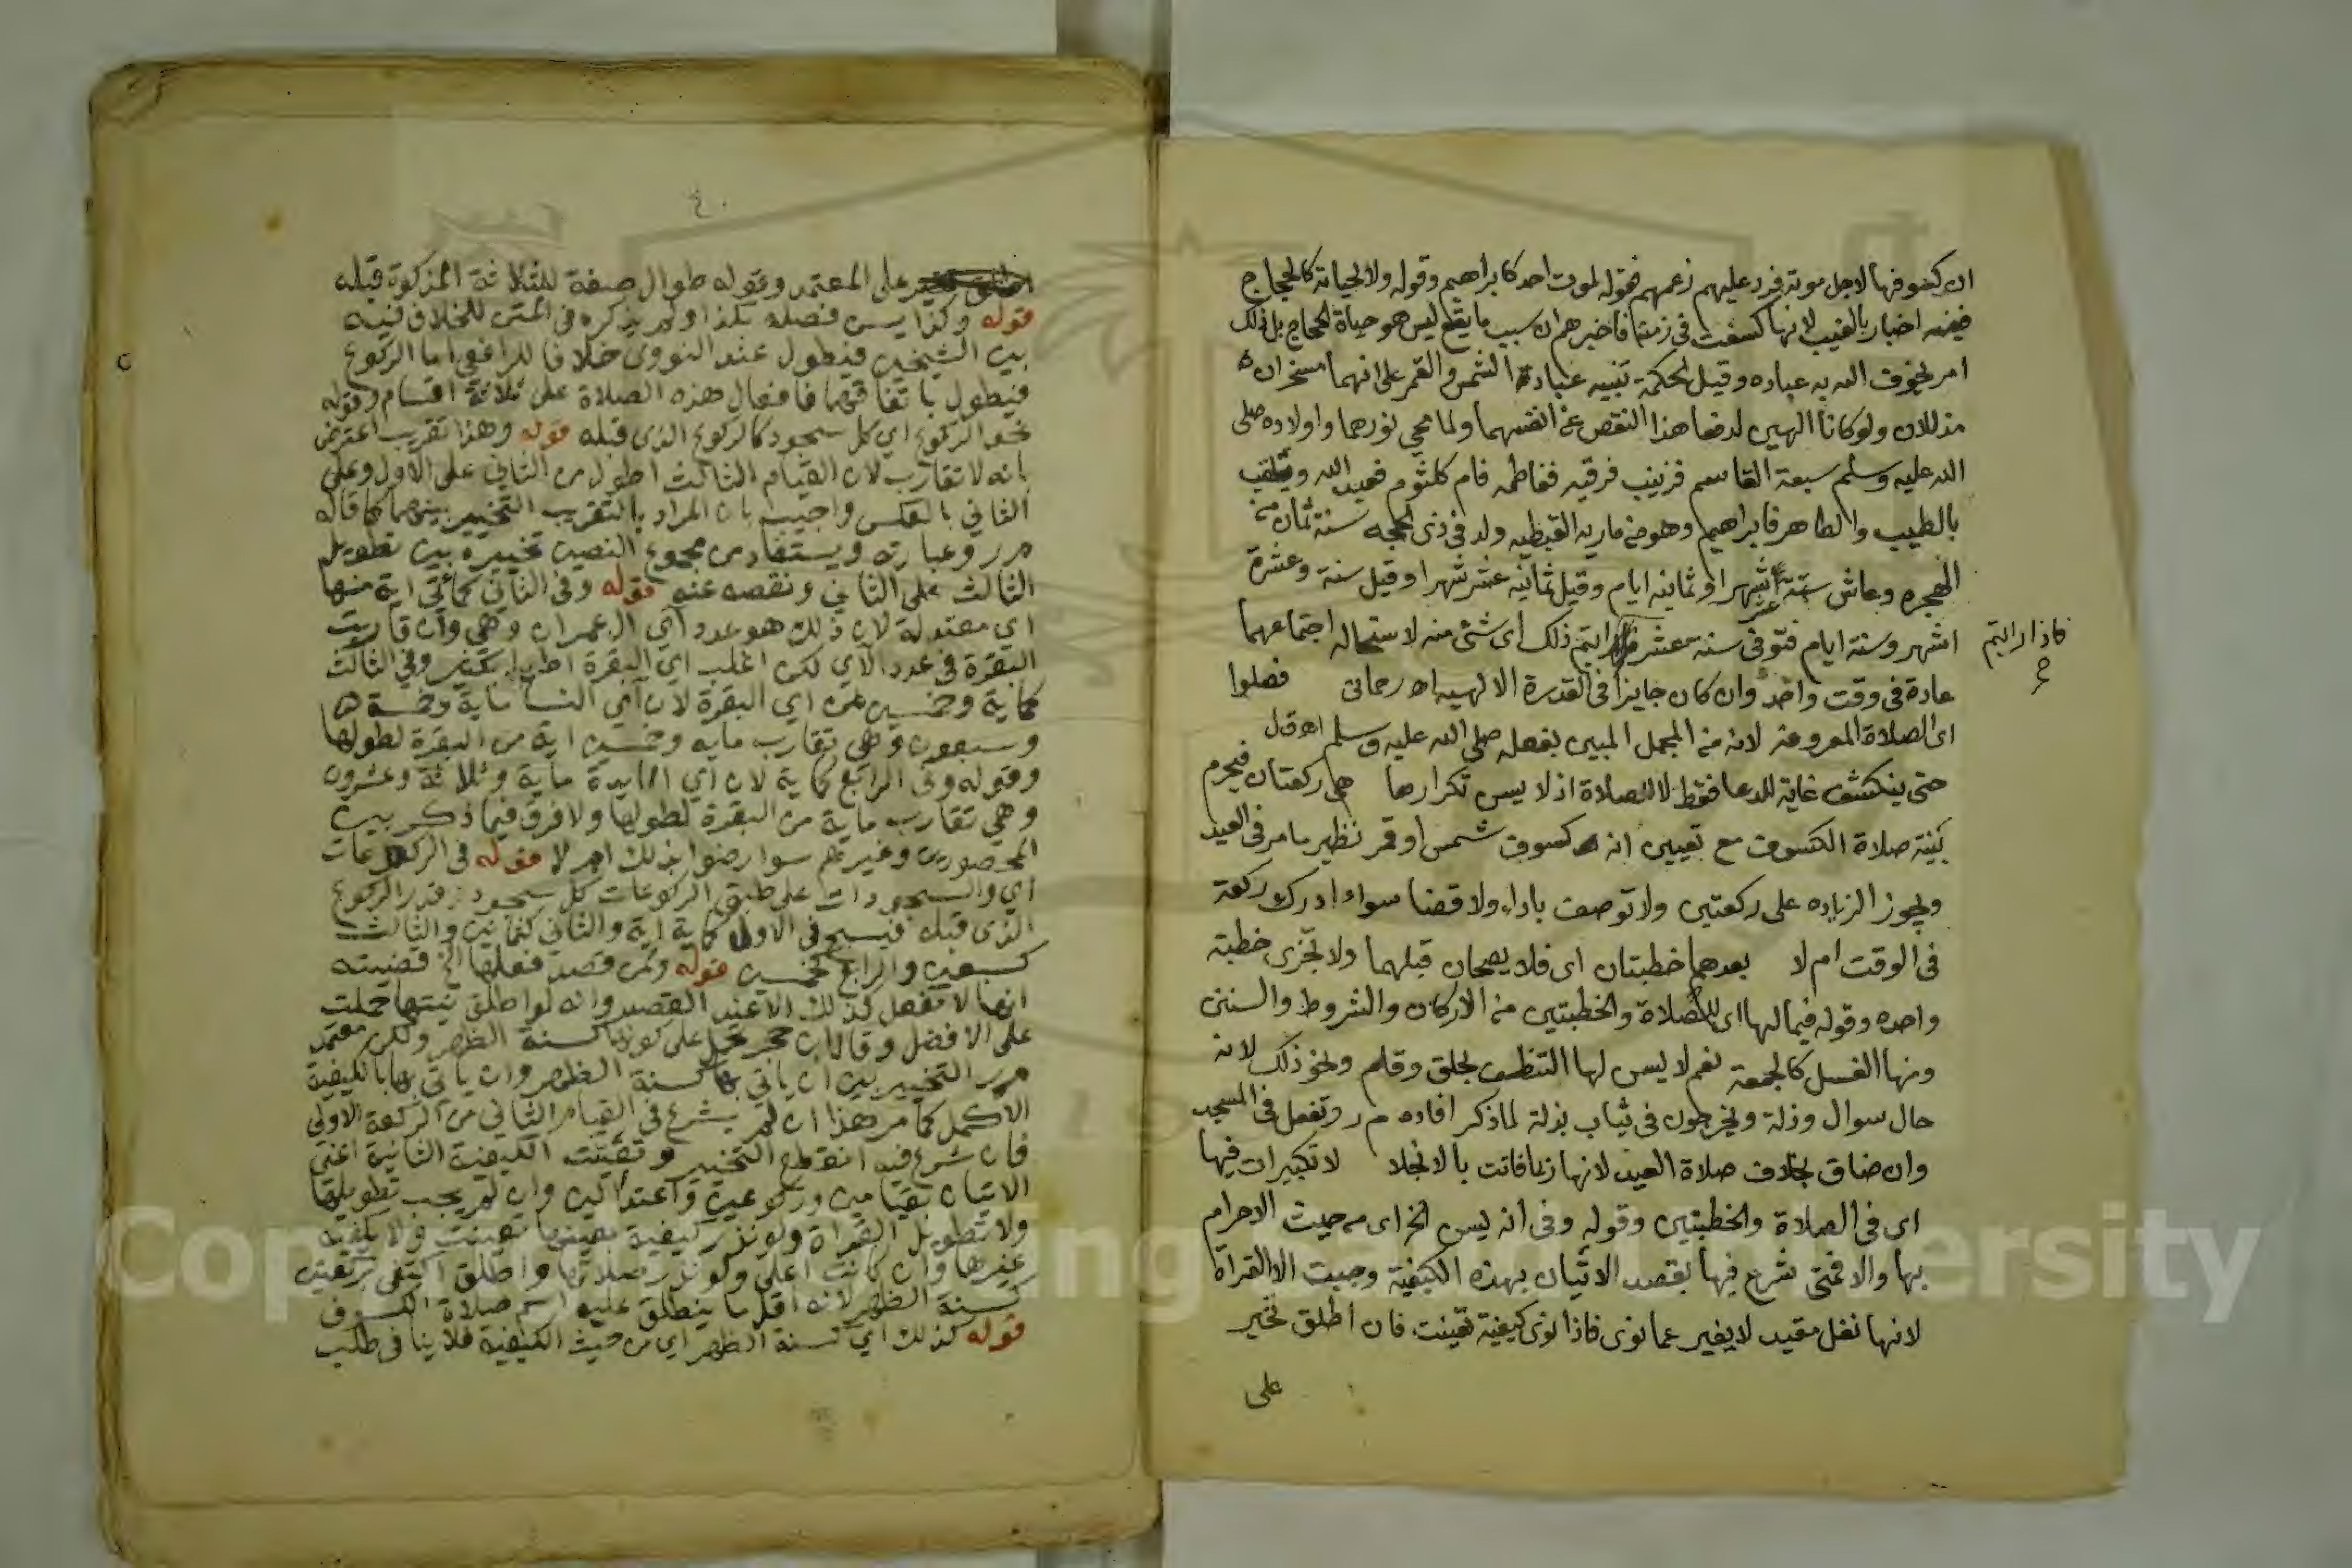 ان كسوفها لاجل موته فرد عليهم زعمهم فقوله لموت احد كابراهيم وقوله ولا لحياته كالحجاج
ففيه اخبار بالغيب لانها كسفت في زمنه فاخبرهم ان سبب ما يقع ليس هو حياة الحجاج بل ذلك
امر يخوف الله به عباده وقيل لحكمة تنبيه عبادة الشمس والقمر على انهما مسخران
مذللان ولو كانا الهين لدفعا هذا النقص عن انفسهما ولما محي نورهما واولاده صلى
الله عليه وسلم سبعة القاسم فزينب فرقيه ففاطمه فام كلثوم فعبد الله ويلقب
بالطيب والطاهر فابراهيم وهو من ماريه القبطيه ولد في ذي الحجه سنة ثمان من
الهجره وعاش ستة عشر شهرا وثمانيه ايام وقيل ثمانيه عشر شهرا وقيل سنة وعشرة
اشهر وستة ايام فتوفى سنة عشر رايتم ذلك اى شئ منه لاستحاله اجتماعهما
فاذا رايتم
عادة في وقت واحد وان كان جايزا في القدرة الالهيه اه رحمانى فصلوا
اى الصلاة المعروفة لانه من المجمل المبين بفعله صلى الله عليه وسلم اه ق ل
حتى ينكشف غاية للدعا فقط لا للصلاة اذ لا يسن تكرارها هى ركعتان فيحرم
بنية صلاة الكسوف مع تعيين انه كسوف شمس او قمر نظير ما مر في العيد
ويجوز الزياده على ركعتين ولا توصف باداء ولا قضا سواء ادرك ركعة
فى الوقت ام لا بعدهما خطبتان اى فلا يصحان قبلهما ولا تجزى خطبة
واحده وقوله فيما لها اى للصلاة والخطبتين من الاركان والشروط والسنن
ومنها الغسل كالجمعة نعم لا يسن لها التنظيف بحلق وقلم ونحو ذلك لانه
حال سوال وذلة ويخرجون فى ثياب بذلة لما ذكر افاده م ر وتفعل فى المسجد
وان ضاق بخلاف صلاة العيد لانها ربما فاتت بالانجلا لا تكبيرات فيها
اى فى الصلاة والخطبتين وقوله وفى انه يسن الخ اى من حيث الاحرام
بها والا فمتى شرع فيها بقصد الاتيان بهذه الكيفية وجبت الا القراة
لانها نفل مقيد لا يغير عما نوى فاذا نوى كيفية تعينت فان اطلق تخير
على
٤٠
على المعتمد وقوله طوال صفة للثلاثة المذكورة قبله
قوله وكذا يسن فصله بكذا ولم يذكره فى المتن للخلاف فيه
بين الشيخين فيطول عند النووى خلافا للرافعي اما الركوع
فيطول باتفاقهما فافعال هذه الصلاة على ثلاثة اقسام وقوله
نحو الركوع اي كل سجود كالركوع الذى قبله قوله وهذا تقريب اعترض
بانه لا تقارب لان القيام الثالث اطول من الثاني على الاول وعلى
الثاني بالعكس واجيب بان المراد بالتقريب التخيير بينهما كما قاله
م ر وعبارته ويستفاد من مجموع النصين تخييره بين تطويل
الثالث على الثاني ونقصه عنه قوله وفى الثاني كمأتي اية منها
اي معتدلة لان ذلك هو عدد آي ال عمران وهي وان قاربت
البقرة فى عدد الآي لكن اغلب اي البقرة اطول بكثير وفي الثالث
كماية وخمسين من اي البقرة لان آي النسا ماية وخمسة
وسبعون وهي تقارب مايه وخمسين اية من البقرة لطولها
وقوله وفى الرابع كماية لان آي المايدة ماية وثلاثة وعشرون
وهي تقارب ماية من البقرة لطولها ولا فرق فيما ذكر بين
المحصورين وغيرهم سوا رضوا بذلك ام لا قوله فى الركوعات
اي والسجودات على طبق الركوعات كل سجود بقدر الركوع
الذى قبله فيسبح في الاول كماية اية والثاني كثمانين والثالث
كسبعين والرابع كخمسين قوله ومن قصد فعلها الخ قضيته
انها لا تفعل كذلك الا عند القصد وانه لو اطلق نيتها حملت
على الافضل وقال ابن حجر تحمل على كونها كسنة الظهر ولكن معتمد
م ر التخيير بين ان ياتي بها كسنة الظهر وان ياتي بها بالكيفية
الاكمل كما مر هذا ان لم يشرع فى القيام الثاني من الركعة الاولى
فان شرع فيه انقطع التخيير وتعينت الكيفية الثانية اعنى
الاتيان بقيامين وركوعين واعتدالين وان لم يجب تطويلها
ولا تطويل القراة ولو نذر كيفية بعينها تعينت ولا يكفيه
غيرها وان كانت اعلى ولو نذر صلاتها واطلق اكتفى بركعتين
كسنة الظهر لانه اقل ما ينطلق عليه اسم صلاة الكسوف
قوله كذلك اي كسنة الظهر اي من حيث الكيفية فلا ينافى طلب